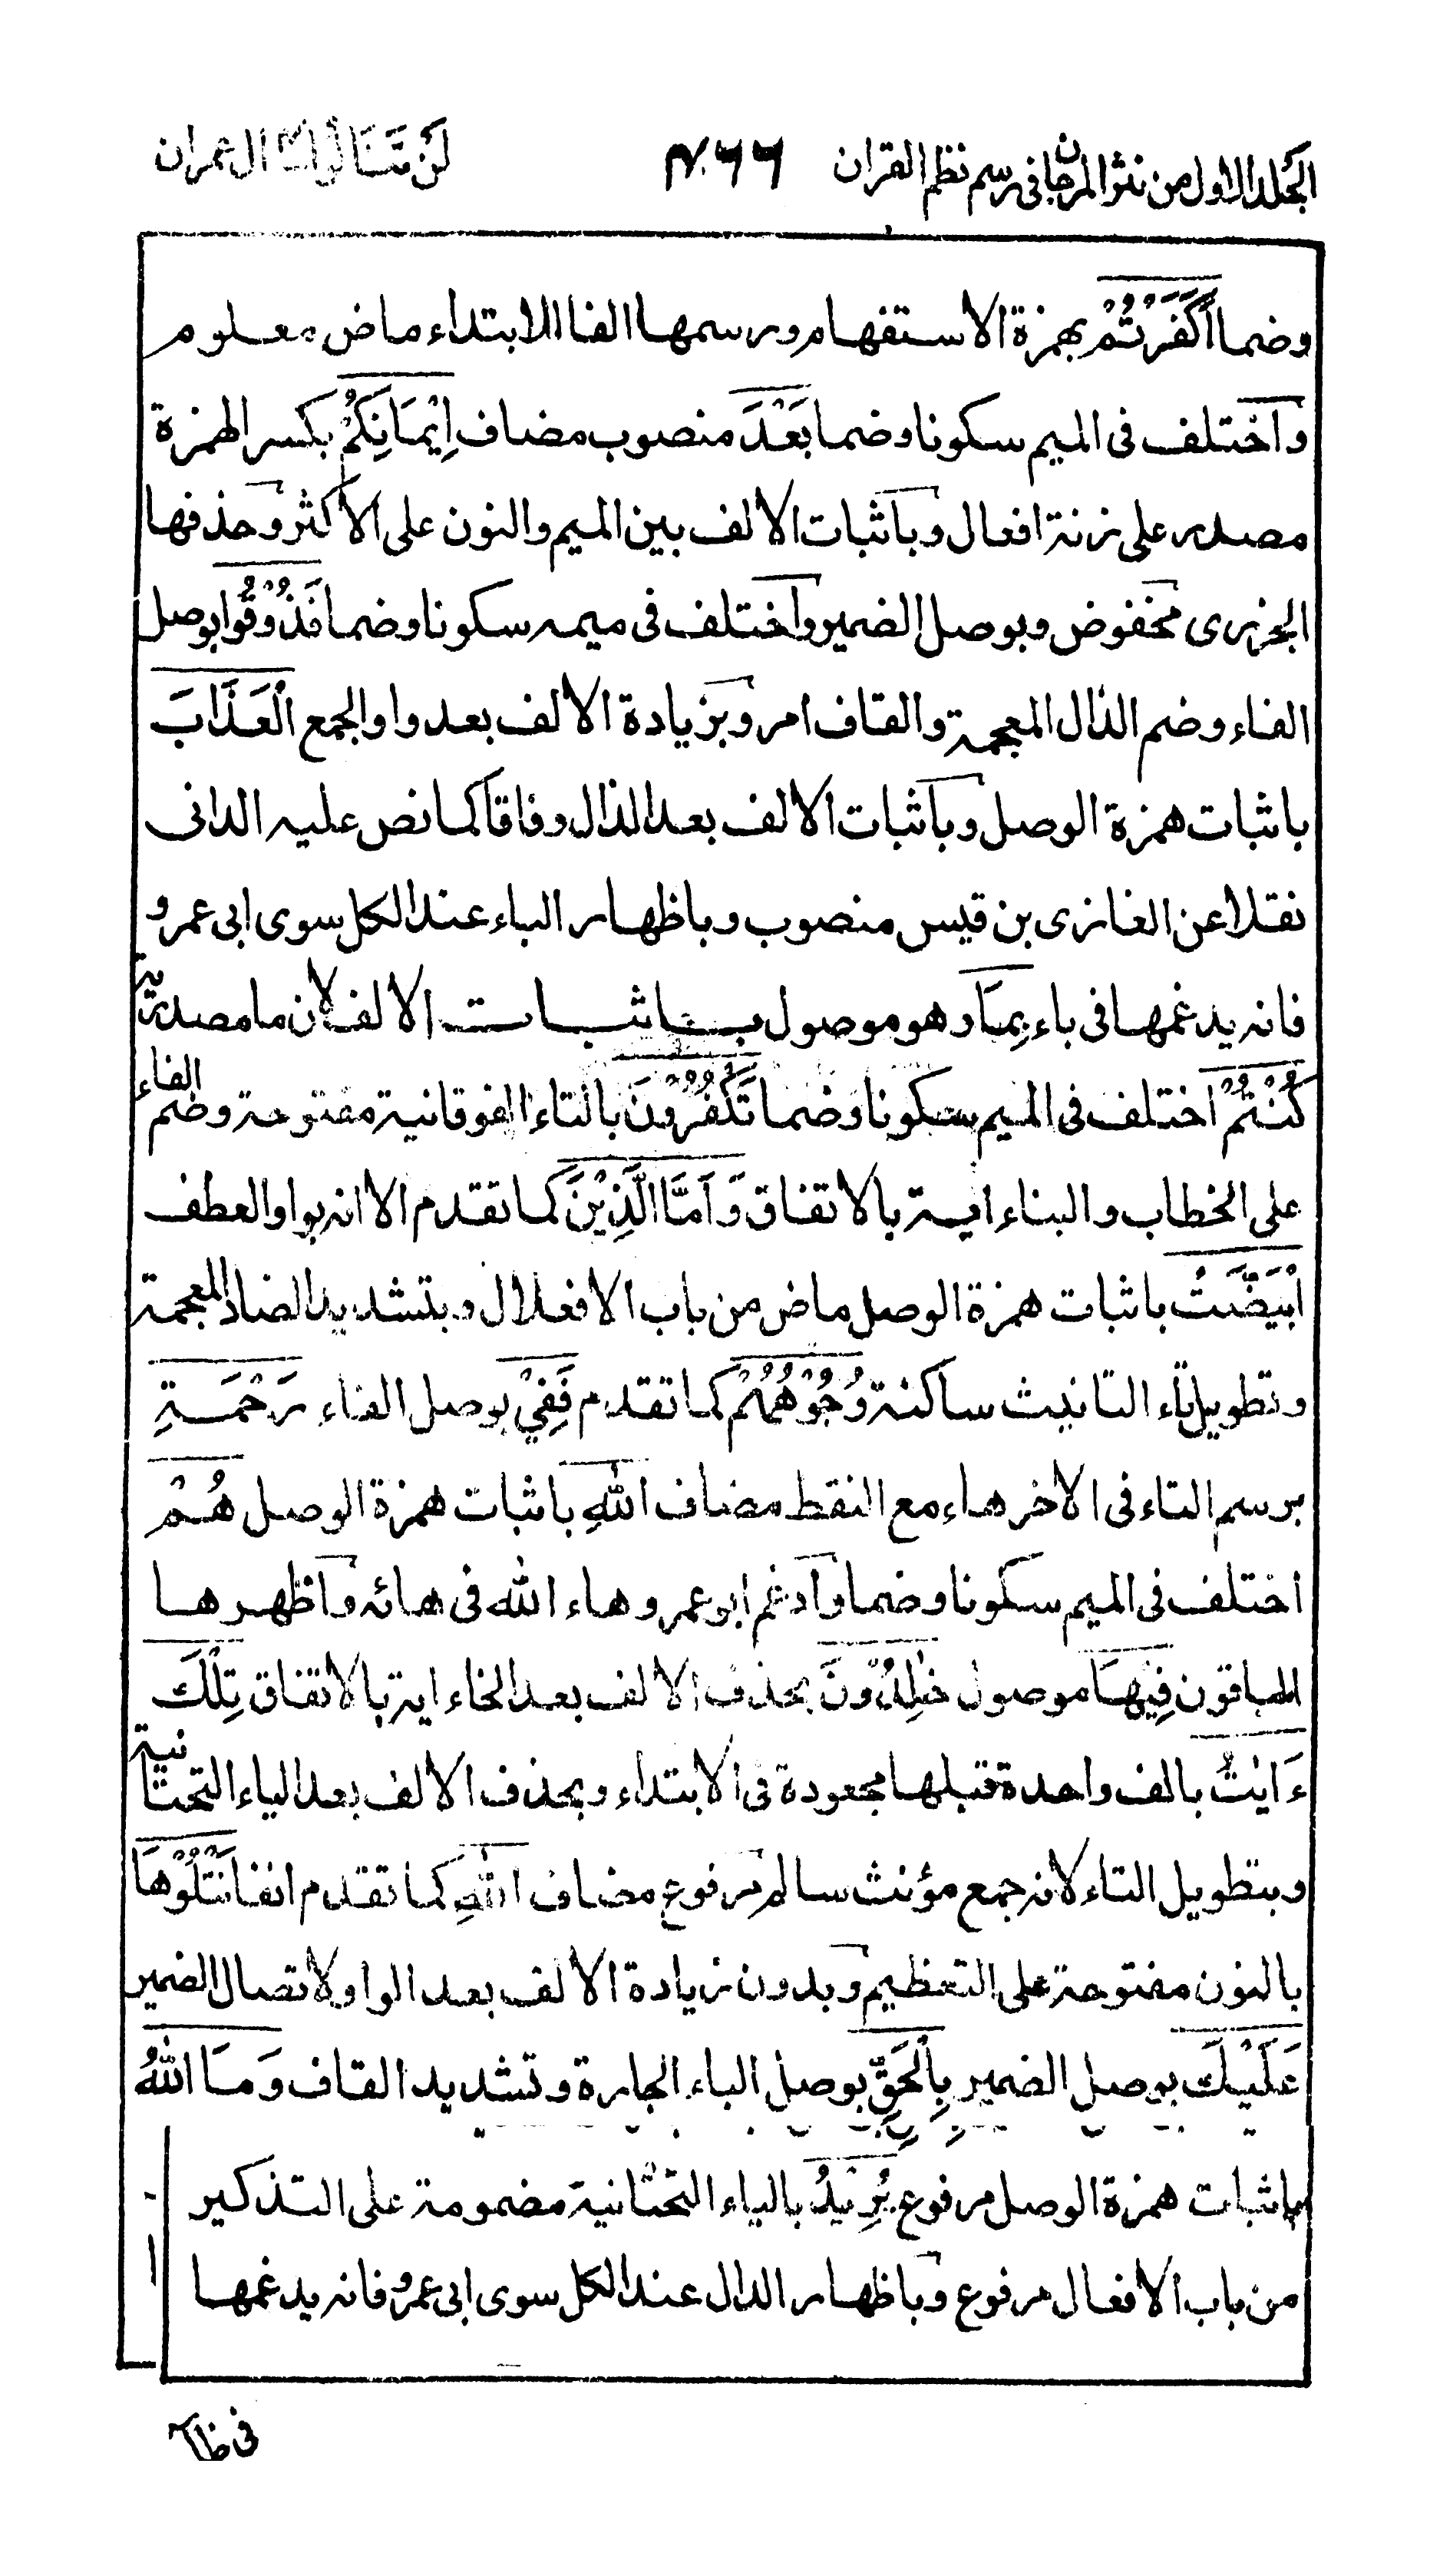 الجلد الاول من نثر المرجان فى رسم نظم القران
لَنْ تَنَالُوا ال عمران
وضما اَكَفَرْتُمْ بهمزة الاستفهام ورسمها الفا للابتداء ماض معلوم
واختلف فى الميم سكونا وضما بَعْدَ منصوب مضاف اِيْمَانِكُمْ بكسر الهمزة
مصدر على زنة افعال وباثبات الالف بين الميم والنون على الاكثر وحذفها
الجزرى مخفوض وبوصل الضمير واختلف فى ميمه سكونا وضما فَذُوْقُوا بوصل
الفاء وضم الذال المعجمة والقاف امر وبزيادة الالف بعد واو الجمع الْعَذَابَ
باثبات همزة الوصل وباثبات الالف بعد الذال وفاقا كما نص عليه الدانى
نقلا عن الغازى بن قيس منصوب وباظهار الباء عند الكل سوى ابى عمرو
فانه يدغمها فى باء بِمَا وهو موصول باثبات الالف لان ما مصدرية
كُنْتُمْ اختلف فى الميم سكونا وضما تَكْفُرُوْنَ بالتاء الفوقانية مفتوحة وضم الفاء
على الخطاب والبناء اية بالاتفاق وَاَمَّا الَّذِيْنَ كما تقدم الا انه بواو العطف
ابْيَضَّتْ باثبات همزة الوصل ماض من باب الافعلال وبتشديد الضاد المعجمة
وتطويل تاء التانيث ساكنة وُجُوْهُهُمْ كما تقدم فَفِيْ بوصل الفاء رَحْمَةِ
برسم التاء فى الاخر هاء مع النقط مضاف اللهِ باثبات همزة الوصل هُمْ
اختلف فى الميم سكونا وضما وادغم ابو عمرو هاء الله فى هائه واظهرها
الباقون فِيْهَا موصول خٰلِدُوْنَ بحذف الالف بعد الخاء اية بالاتفاق تِلْكَ
ءَايٰتُ بالف واحدة قبلها مجعودة فى الابتداء وبحذف الالف بعد الياء التحتانية
وبتطويل التاء لانه جمع مؤنث سالم مرفوع مضاف اللهِ كما تقدم انفا نَتْلُوْهَا
بالنون مفتوحة على التعظيم وبدون زيادة الالف بعد الواو لاتصال الضمير
عَلَيْكَ بوصل الضمير بِالْحَقِّ بوصل الباء الجارة وتشديد القاف وَمَا اللهُ
باثبات همزة الوصل مرفوع يُرِيْدُ بالياء التحتانية مضمومة على التذكير
من باب الافعال مرفوع وباظهار الدال عند الكل سوى ابى عمرو فانه يدغمها